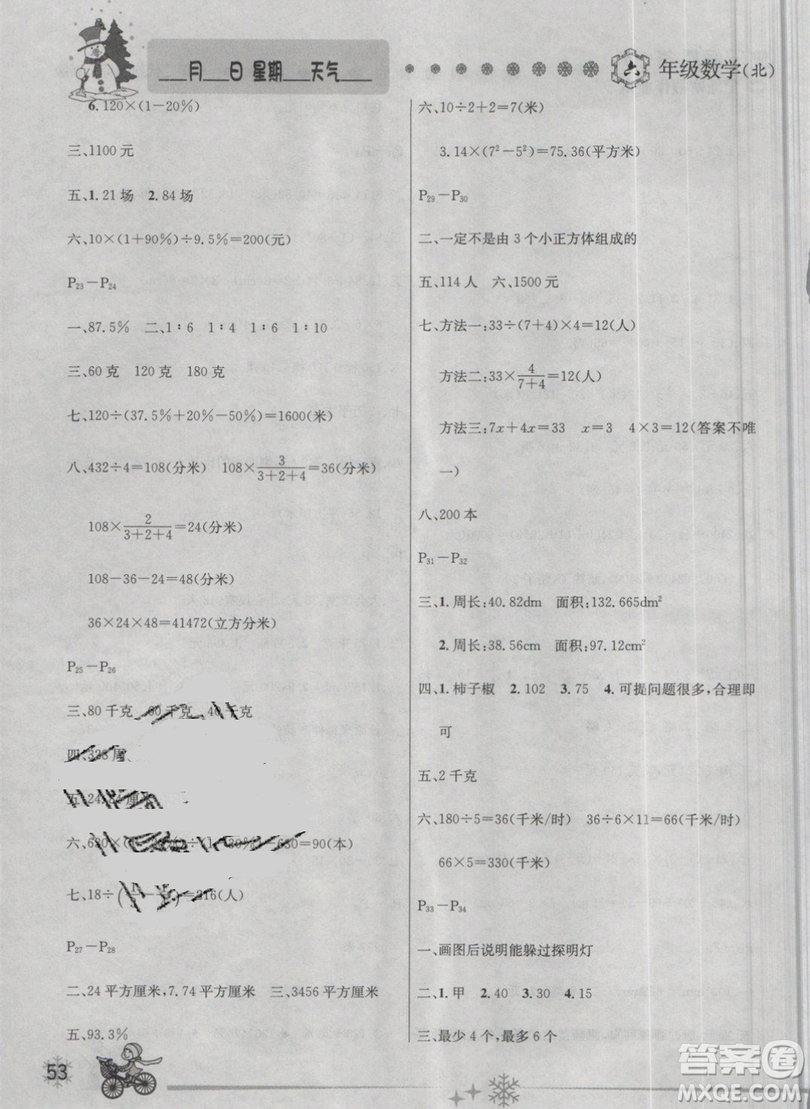 ___月___日 星期___天气___
六 年级数学(北)
6. 120×(1-20%)
三、1100 元
五、1. 21 场 2. 84 场
六、10×(1+90%)÷9.5%=200(元)
P23-P24
一、87.5% 二、1∶6 1∶4 1∶6 1∶10
三、60 克 120 克 180 克
七、120÷(37.5%+20%-50%)=1600(米)
八、432÷4=108(分米) 108×3/(3+2+4)=36(分米)
108×2/(3+2+4)=24(分米)
108-36-24=48(分米)
36×24×48=41472(立方分米)
P25-P26
三、80 千克 60 千克 40 千克
四、328 周
五、24. 厘米
六、630×
-630=90(本)
七、18÷
=216(人)
P27-P28
二、24 平方厘米,7.74 平方厘米 三、3456 平方厘米
五、93.3%
53
六、10÷2+2=7(米)
3.14×(7²-5²)=75.36(平方米)
P29-P30
二、一定不是由 3 个小正方体组成的
五、114 人 六、1500 元
七、方法一:33÷(7+4)×4=12(人)
方法二:33×4/(7+4)=12(人)
方法三:7x+4x=33 x=3 4×3=12(答案不唯
一)
八、200 本
P31-P32
三、1. 周长:40.82dm 面积:132.665dm²
2. 周长:38.56cm 面积:97.12cm²
四、1. 柿子椒 2. 102 3. 75 4. 可提问题很多,合理即
可
五、2 千克
六、180÷5=36(千米/时) 36÷6×11=66(千米/时)
66×5=330(千米)
P33-P34
一、画图后说明能躲过探明灯
二、1. 甲 2. 40 3. 30 4. 15
三、最少 4 个,最多 6 个
答案圈
MXQE.COM